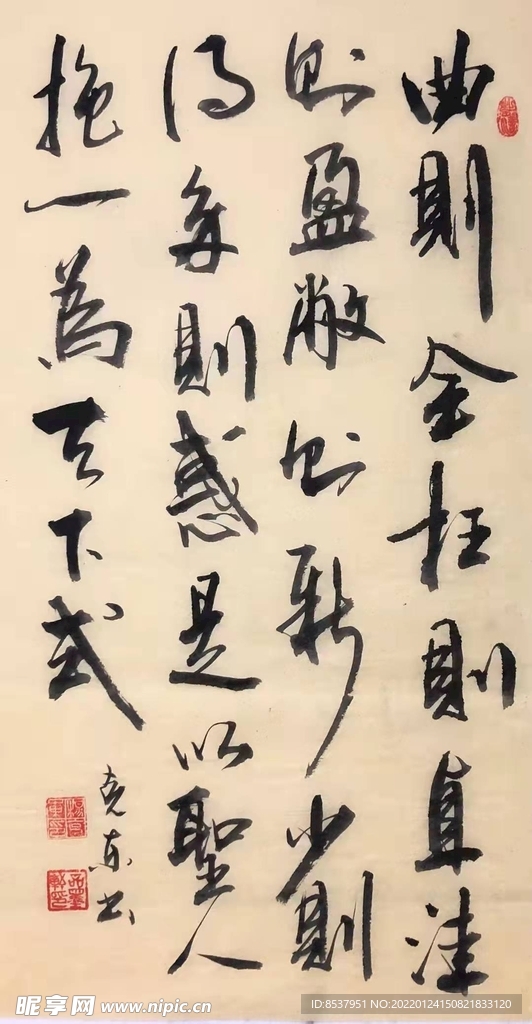 曲则全枉则直洼
则盈敝则新少则
得多则惑是以聖人
抱一為天下式
克东书
昵享网 www.nipic.cn
ID:8537951 NO:20220124150821833120